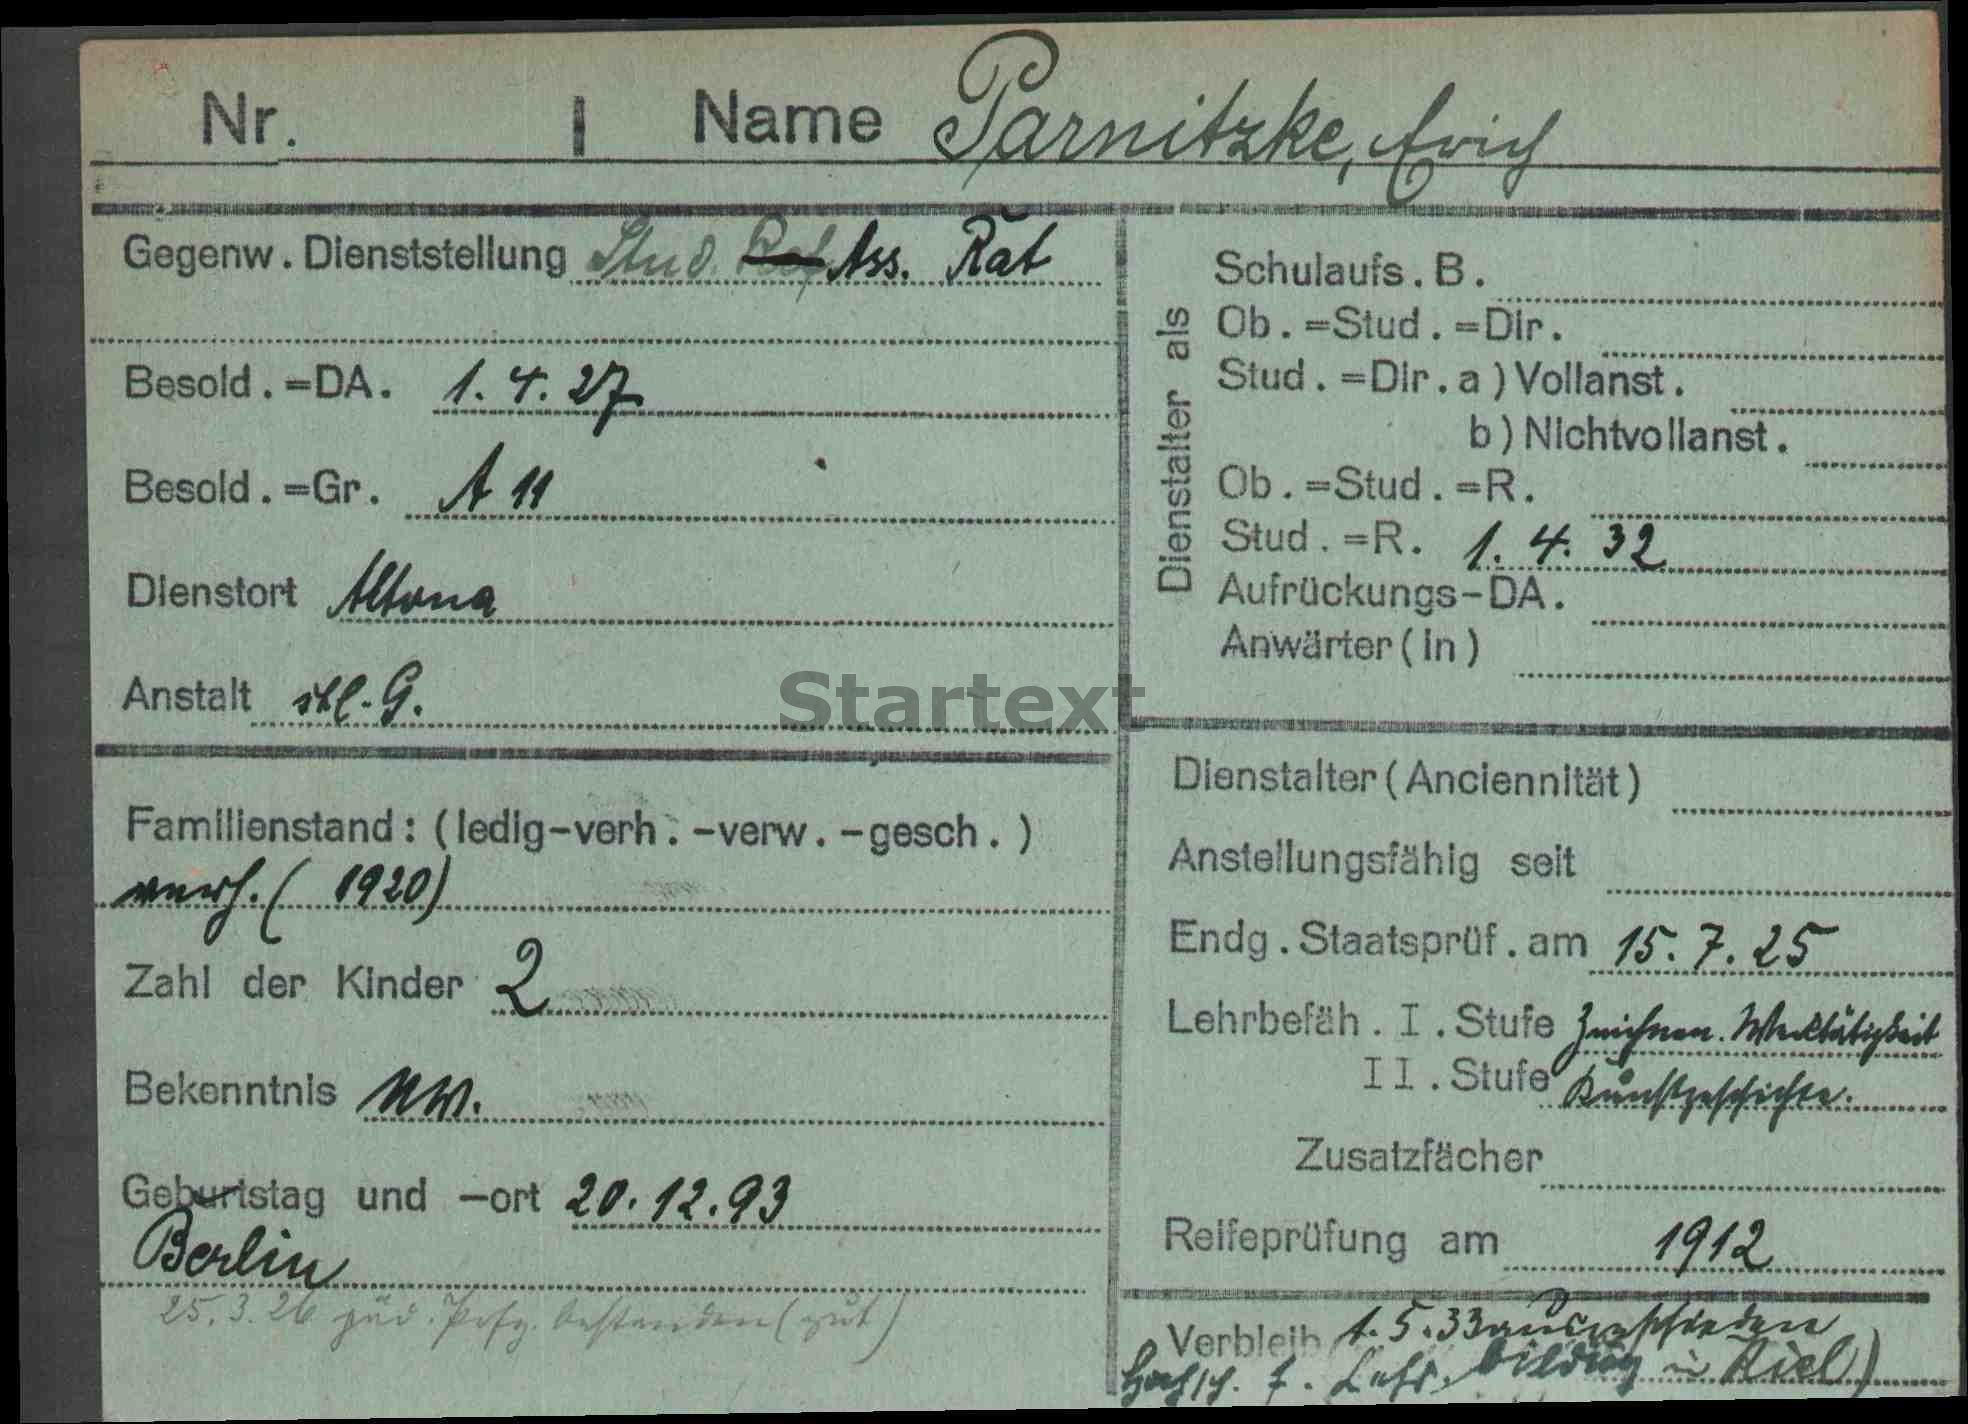 Nr. | Name Parnitzke, Erich
Gegenw. Dienststellung Stud. Ref. Ass. Rat
Besold.=DA. 1. 4. 27
Besold.=Gr. A 11
Dienstort Altona
Anstalt stl. G.
Familienstand: (ledig-verh.-verw.-gesch.)
verh. (1920)
Zahl der Kinder 2
Bekenntnis
Geburtstag und -ort 20.12.93
Berlin
25.3.26 päd. Prfg. bestanden (gut)
Dienstalter als
Schulaufs.B.
Ob.=Stud.=Dir.
Stud.=Dir.a) Vollanst.
b) Nichtvollanst.
Ob.=Stud.=R.
Stud.=R. 1. 4. 32
Aufrückungs-DA.
Anwärter(in)
Dienstalter (Anciennität)
Anstellungsfähig seit
Endg. Staatsprüf. am 15. 7. 25
Lehrbefäh. I. Stufe Zeichnen. Werktätigkeit
II. Stufe Kunstgeschichte.
Zusatzfächer
Reifeprüfung am 1912
Verbleib 1. 5. 33 ausgeschieden
Hochsch. f. Lehr. bildung in Kiel)
Startext